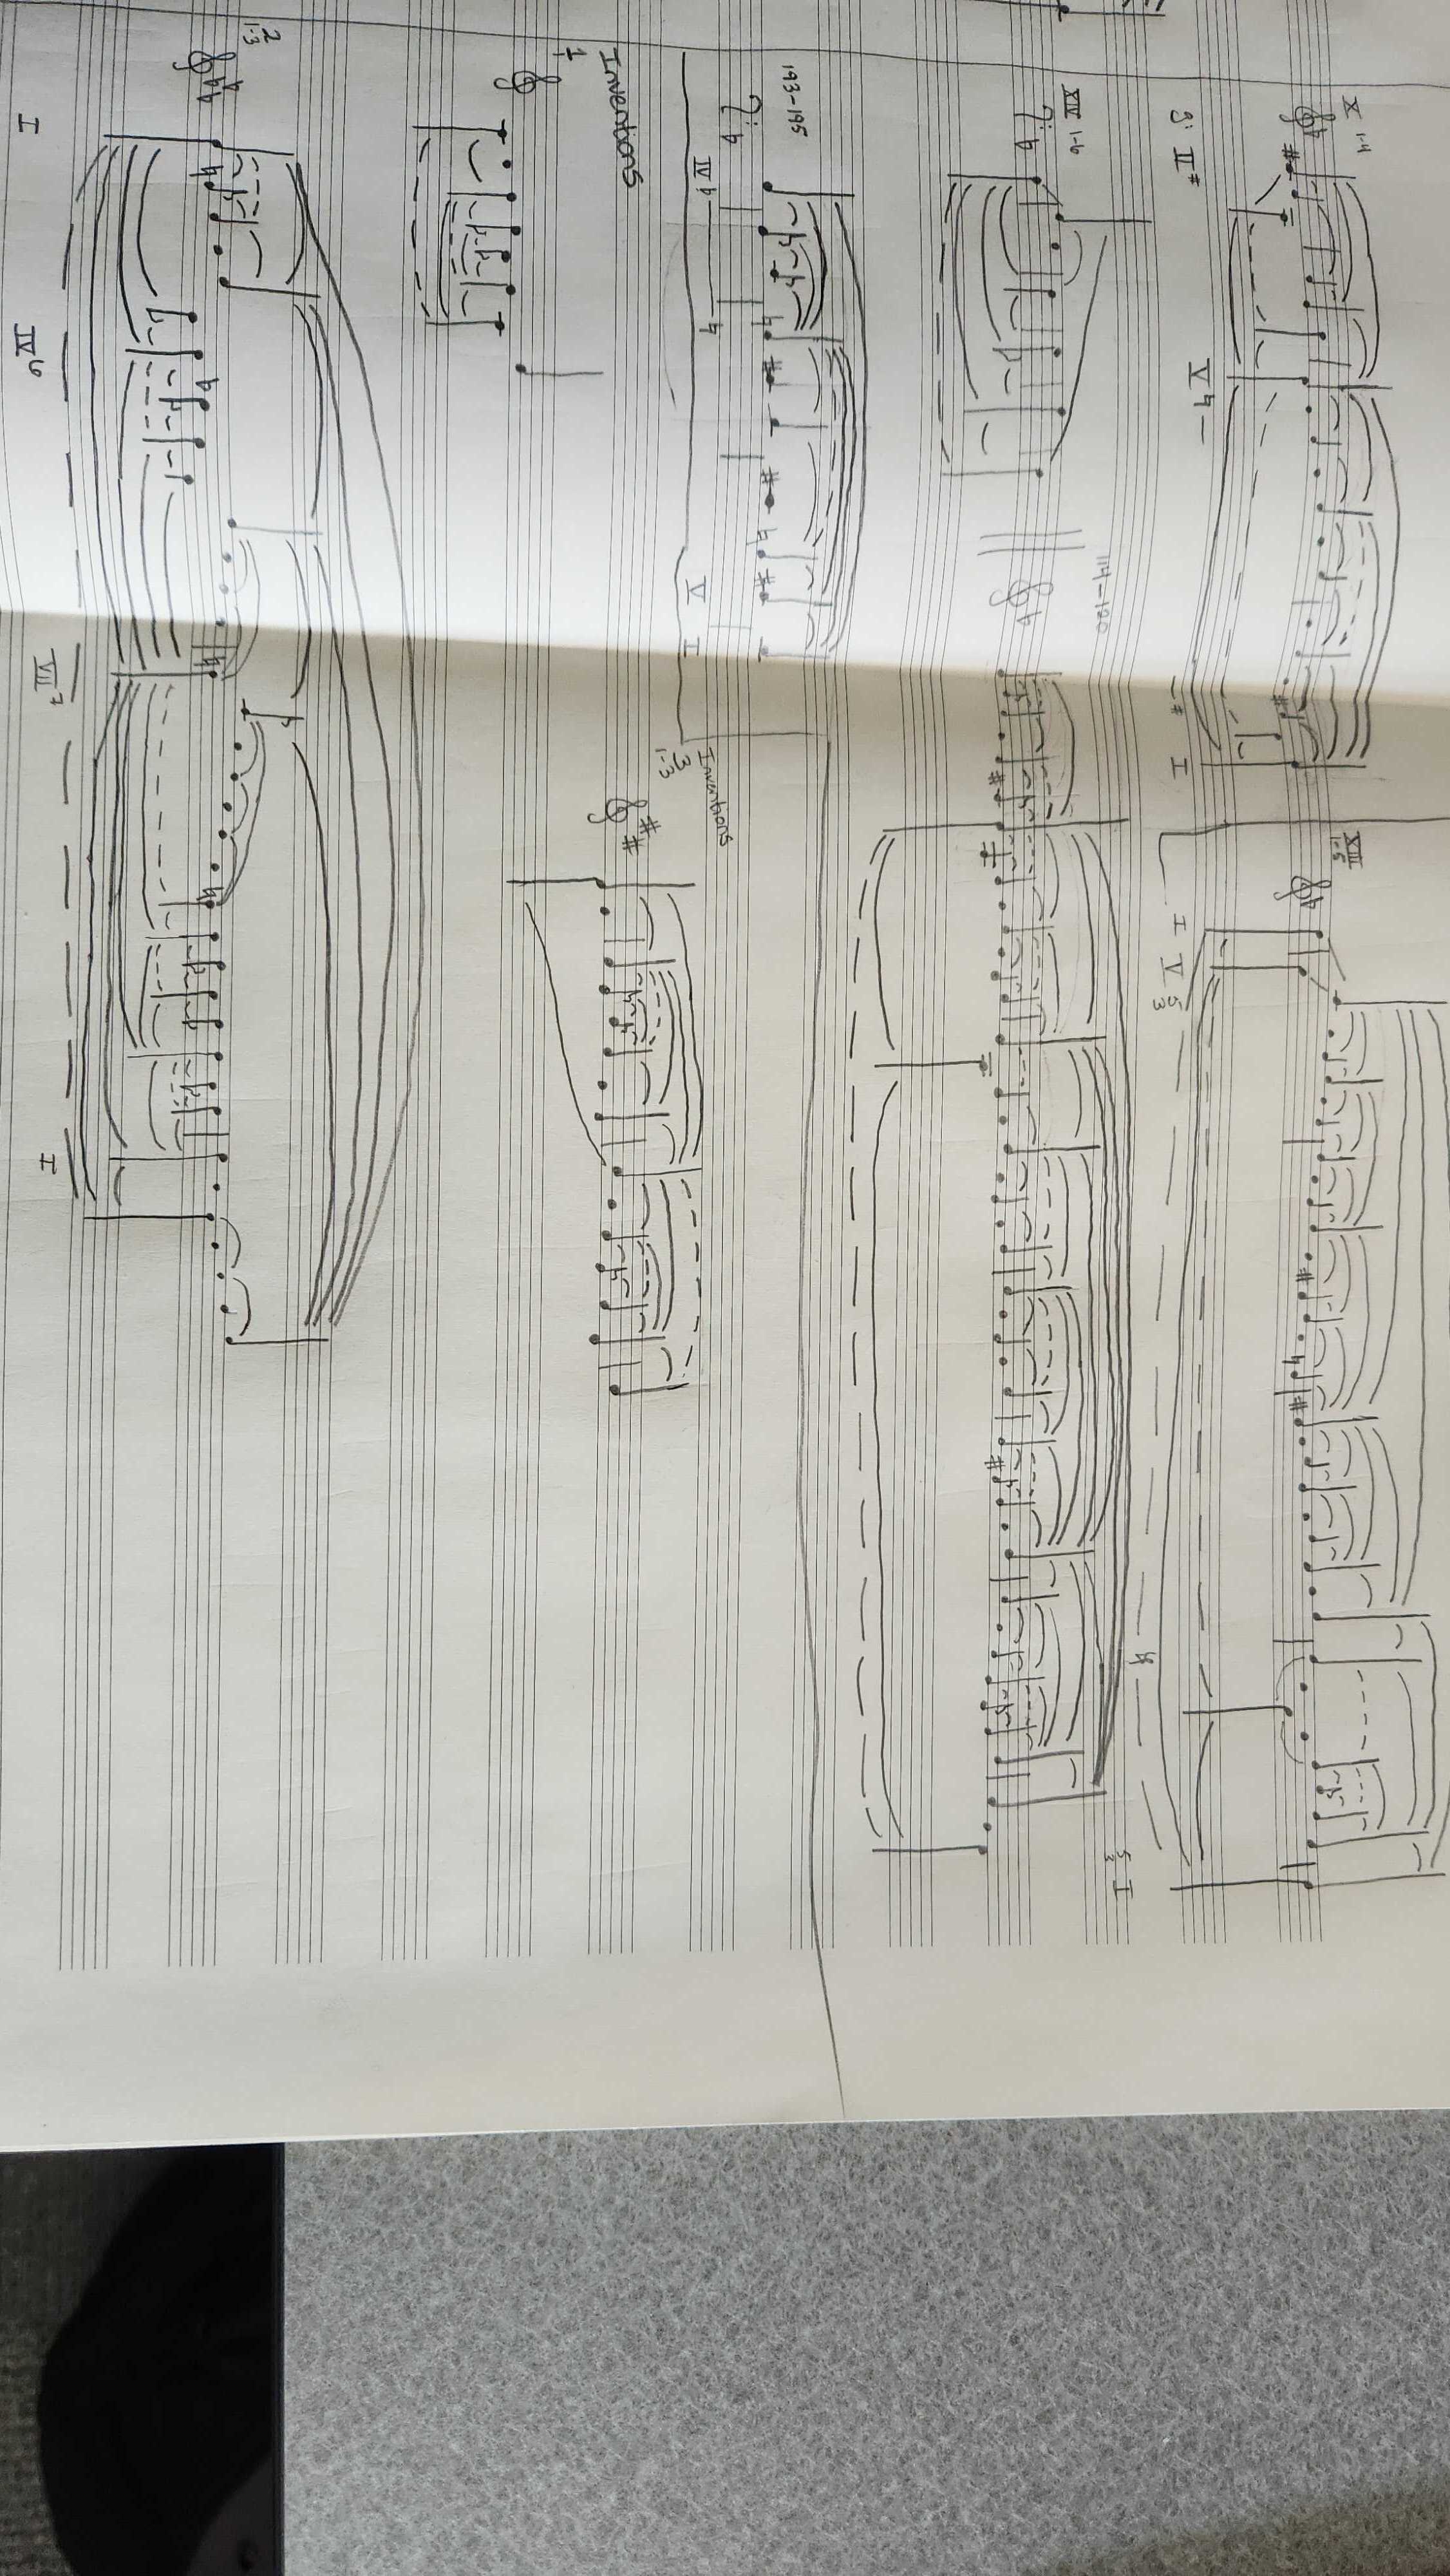 X 1-4
II# V♮ — — # I
XIII
1-5
I V 5
3
♮
5
3 I
XIV 1-6
114-120
193-195
VI ♮ ♮ V I
Inventions
1
1
Inventions
3
1-3
2
1-3
I IV6 VII7 I